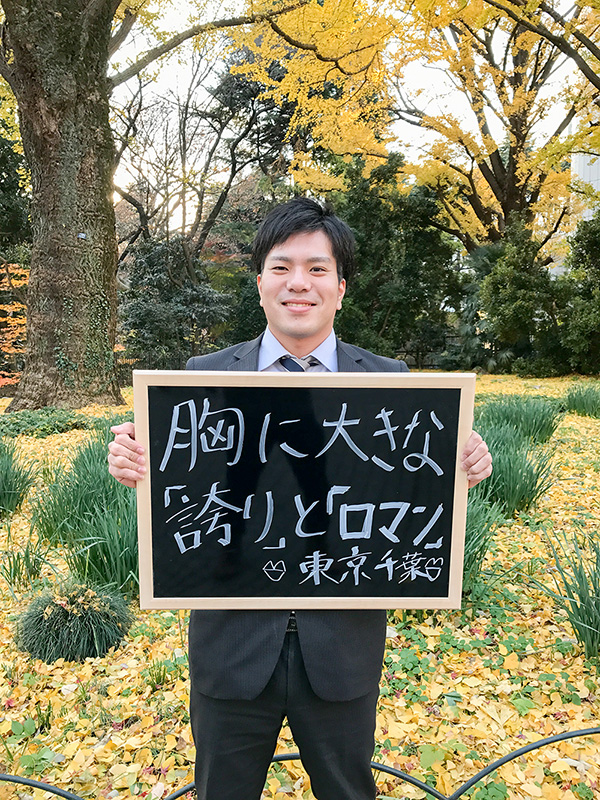 胸に大きな
「誇り」と「ロマン」
東京千葉